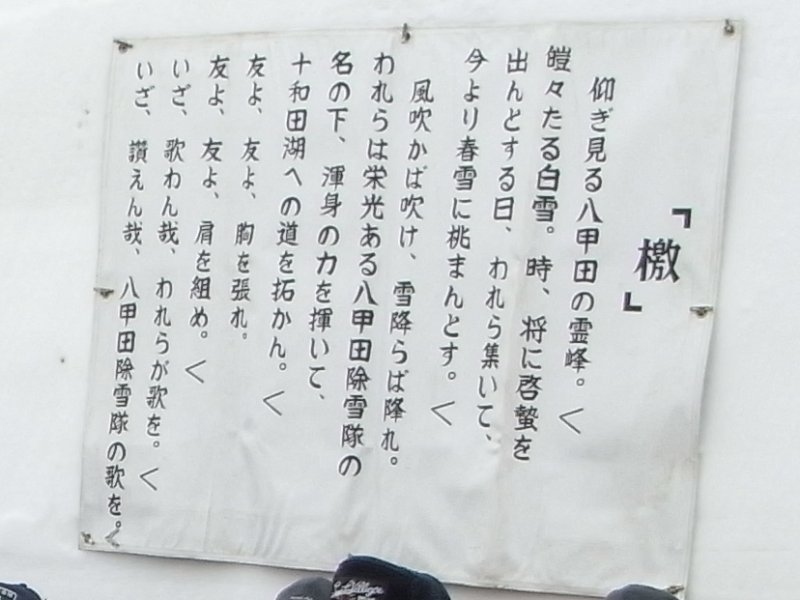 『檄』
仰ぎ見る八甲田の霊峰。く
皚々たる白雪。時、将に啓蟄を
出んとする日、われら集いて、
今より春雪に挑まんとす。く
風吹かば吹け、雪降らば降れ。
われらは栄光ある八甲田除雪隊の
名の下、渾身の力を揮いて、
十和田湖への道を拓かん。く
友よ、友よ、胸を張れ。
友よ、友よ、肩を組め。く
いざ、歌わん哉、われらが歌を。く
いざ、讃えん哉、八甲田除雪隊の歌を。く